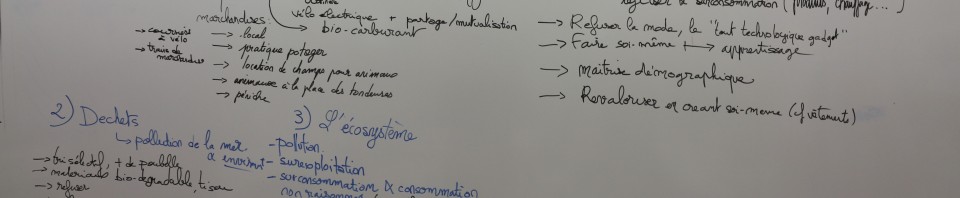 vélo électrique + partage/mutualisation
→ bio-carburant
marchandises:
→ coursiers à vélo
→ train de marchandises
→ local
→ pratique potager
→ location de champs pour animaux
→ animaux à la place des tondeuses
→ péniche
& surconsommation
→ Refuser la mode, le "tout technologique gadget"
→ Faire soi-même → apprentissage
→ maîtrise démographique
→ Revaloriser en créant soi-même (cf vêtements)
2) Dechets
↳ pollution de la mer
& envirnt
→ tri sélctf, + de poubelle
→ materiaux bio-dégradable, tissu
→ refuser
3) L'écosystème
- pollution
- surexploitation
- surconsommation & consommation
non raisonnée